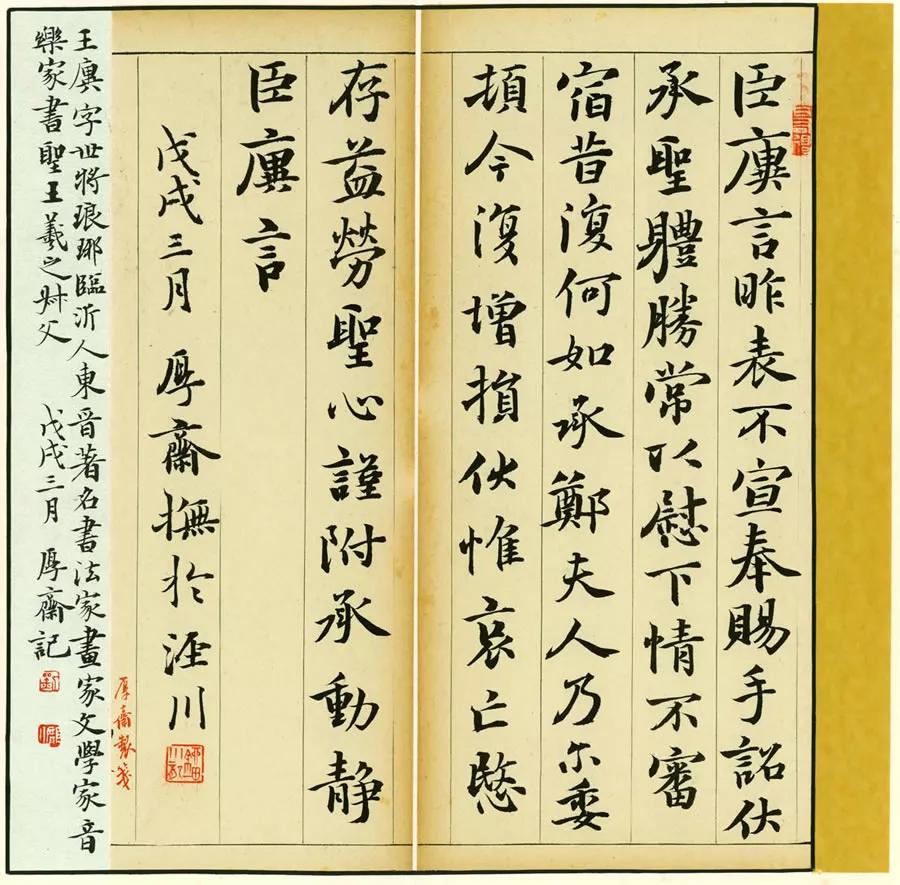 臣廙言昨表不宣奉賜手詔伏
承聖體勝常以慰下情不審
宿昔復何如承鄭夫人乃尔委
頓今復增損伏惟哀亡愍
存益勞聖心謹附承動静
臣廙言
戊戌三月 厚齋撫於涇川
厚齋製箋
王廙字世將琅琊臨沂人東晉著名書法家畫家文學家音
樂家書聖王羲之叔父 戊戌三月 厚齋記